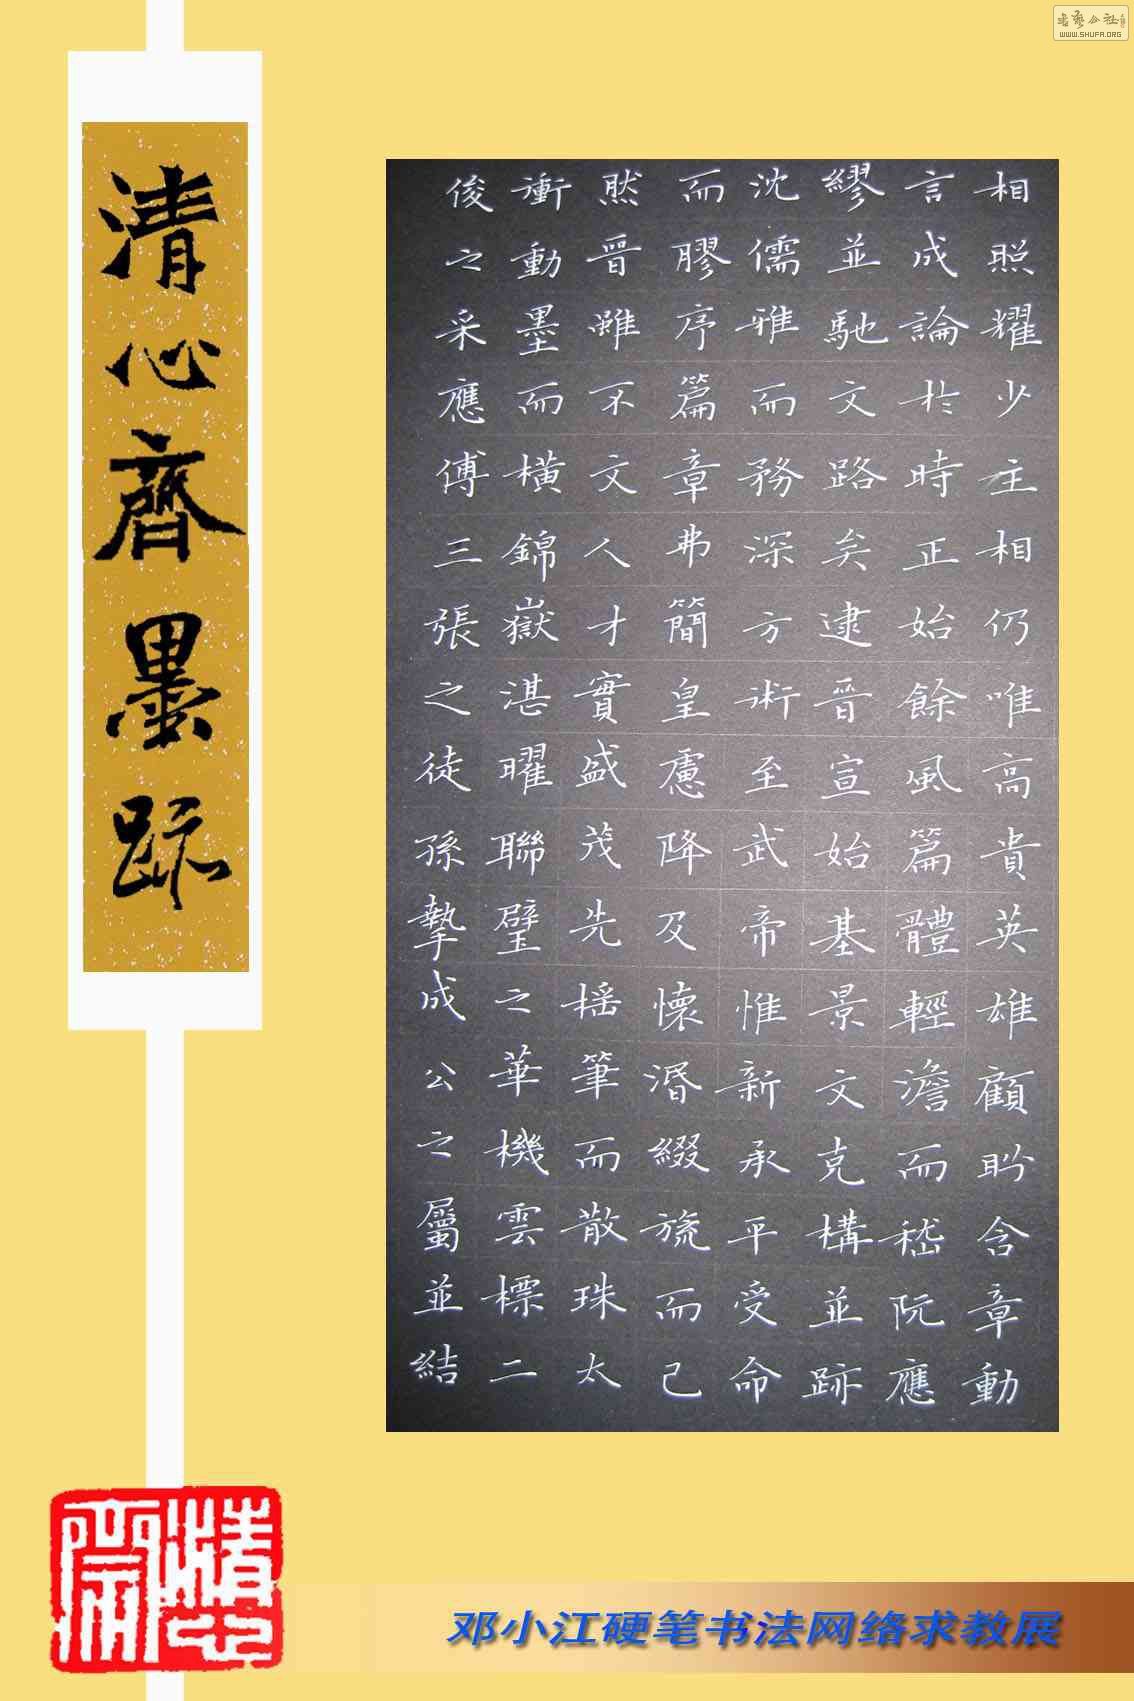 书艺公社
WWW.SHUFA.ORG
清心齊墨跡
相照耀少主相仍唯高貴英雄顧盼含章動
言成論於時正始餘風篇體輕澹而嵇阮應
繆並馳文路矣逮晉宣始基景文克構並跡
沈儒雅而務深方術至武帝惟新承平受命
而膠序篇章弗簡皇慮降及懷湣綴旒而己
然晉雖不文人才實盛茂先搖筆而散珠太
衝動墨而橫錦嶽湛曜聯璧之華機雲標二
俊之采應傅三張之徒孫摯成公之屬並結
清心齋
邓小江硬笔书法网络求教展